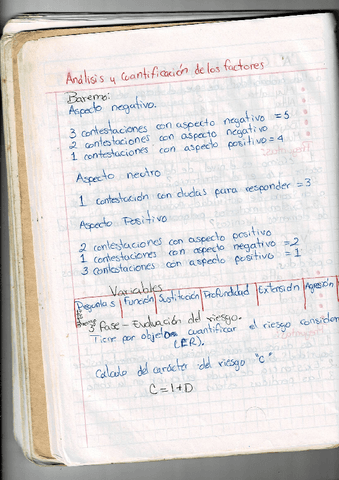 Análisis y cuantificación de los factores
Baremo:
Aspecto negativo.
3 contestaciones con aspecto negativo = 5
2 contestaciones con aspecto negativo
1 contestaciones con aspecto positivo = 4
Aspecto neutro
1 contestación con dudas para responder = 3
Aspecto Positivo
2 contestaciones con aspecto positivo
1 contestaciones con aspecto negativo = 2
3 contestaciones con aspecto positivo = 1
Variables
Preguntas Función Sustitución Profundidad Extensión Agresión
3° Fase - Evaluación del riesgo.
Tiene por objeto cuantificar el riesgo consider
(ER).
Calculo del carácter del riesgo "C"
C = I + D